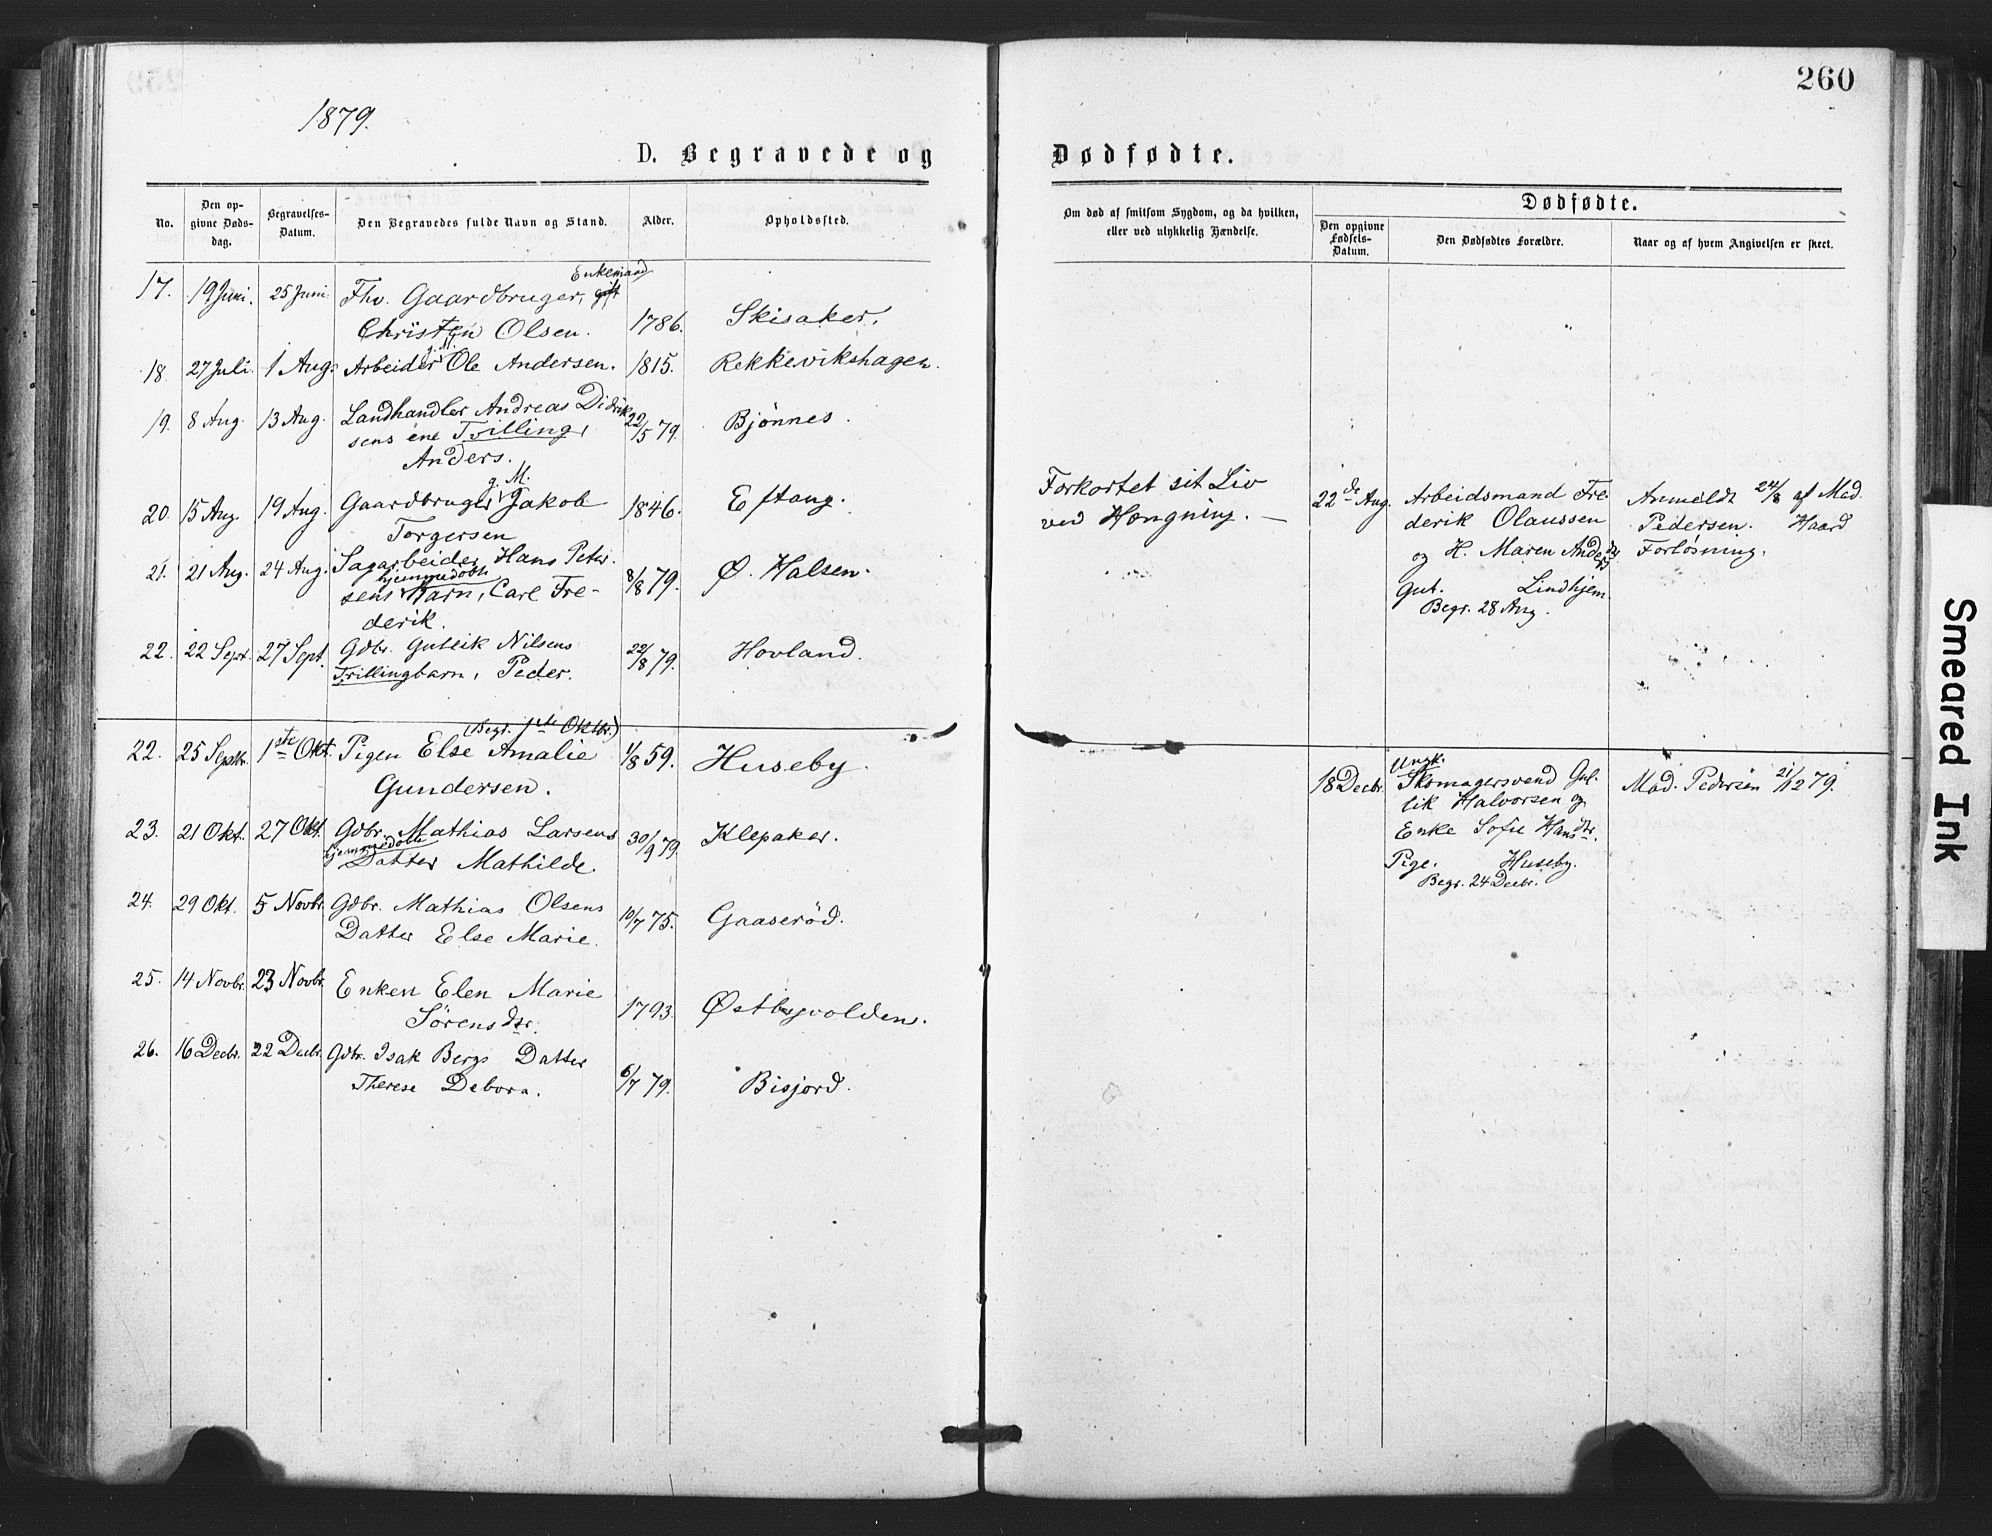 260
1879.
D. Begravede og Dødfødte.
No.
Den opgivne Dødsdag.
Begravelses-Datum.
Den Begravedes fulde Navn og Stand.
Alder.
Opholdssted.
Om død af smitsom Sygdom, og da hvilken, eller ved ulykkelig Hændelse.
Dødfødte.
Den opgivne Fødsels-Datum.
Den Dødfødtes Forældre.
Naar og af hvem Angivelsen er skeet.
Enkemand
17. 19 Juni. 25 Juni. Fhv. Gaardbruger, gift
Christen Olsen. 1786. Skisaker.
g. M.
18. 27 Juli. 1 Aug. Arbeider Ole Andersen. 1815. Rekkevikshagen.
19. 8 Aug. 13 Aug. Landhandler Andreas Didrik
sens ene Tvilling, 22/5 79. Bjønnes.
Anders.
g. M.
20. 15 Aug. 19 Aug. Gaardbruger Jakob 1846. Eftang.
Torgersen
21. 21 Aug. 24 Aug. Sagarbeider Hans Peter
hjemmedøbte
sens Barn, Carl Fre- 8/8 79. Ø. Halsen.
derik.
22. 22 Sept. 27 Sept. Gdbr. Gullik Nilsens 22/8 79. Hovland.
Trillingbarn, Peder.
(Begr. 1ste Oktbr.)
22. 25 Septbr. 1ste Okt. Pigen Else Amalie 1/8 59. Huseby.
Gundersen.
23. 21 Okt. 27 Okt. Gdbr. Mathias Larsens 30/9 79. Klepaker.
hjemmedøbte
Datter Mathilde.
24. 29 Okt. 5 Novbr. Gdbr. Mathias Olsens 10/7 75. Gaaserød.
Datter Else Marie.
25. 14 Novbr. 23 Novbr. Enken Elen Marie
Sørensdtr. 1793. Østbyvolden.
26. 16 Decbr. 22 Decbr. Gdbr. Isak Bergs Datter
Therese Debora. 6/7 79. Bisjord.
Forkortet sit Liv
ved Hængning. —
22de Aug. Arbeidsmand Fre
derik Olaussen
og H. Maren Andersdtr
Gut. Lindhjem.
Begr. 28 Aug.
Anmeldt 24/8 af Mad.
Pedersen. Haard
Forløsning.
Ungk.
18 Decbr. Skomagersvend Gul-
lik Halvorsen og
Enke Sofie Hansdtr.
Pige. Huseby.
Begr. 24 Decbr.
Mad. Pedersen 21/12 79.
Smeared Ink